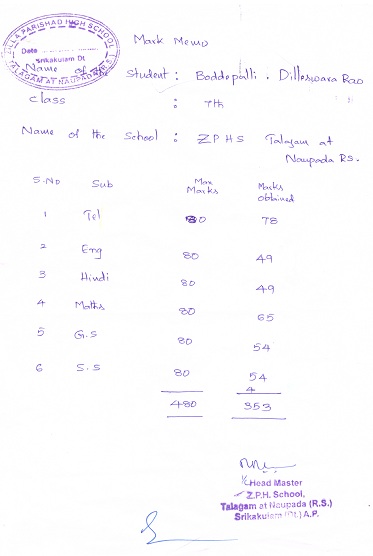 ZILLA PARISHAD HIGH SCHOOL
Date
Srikakulam Dt.
TALAGAM AT NAUPADA R.S.
Mark Memo
Name of the Student : Boddepalli . Dilleswara Rao
Class : 7th
Name of the School : Z.P.H.S Talagam at
Naupada RS.
S.No Sub Max Marks Marks Obtained
1 Tel 80 78
2 Eng 80 49
3 Hindi 80 49
4 Maths 80 65
5 G.S 80 54
6 S.S 80 54
4
480 353
Head Master
Z.P.H. School,
Talagam at Naupada (R.S.)
Srikakulam (Dt.) A.P.